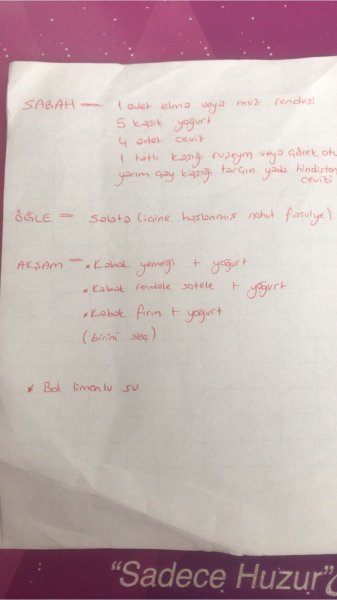 SABAH — 1 adet elma veya muz rendesi
5 kaşık yoğurt
4 adet ceviz
1 tatlı kaşığı rüşeym veya çörek otu
yarım çay kaşığı tarçın yada hindistan
cevizi
ÖĞLE = Salata (içine haşlanmış nohut fasulye)
AKŞAM — * Kabak yemeği + yoğurt
* Kabak rendele sotele + yoğurt
* Kabak fırın + yoğurt
(birini seç)
* Bol limonlu su
"Sadece Huzur"